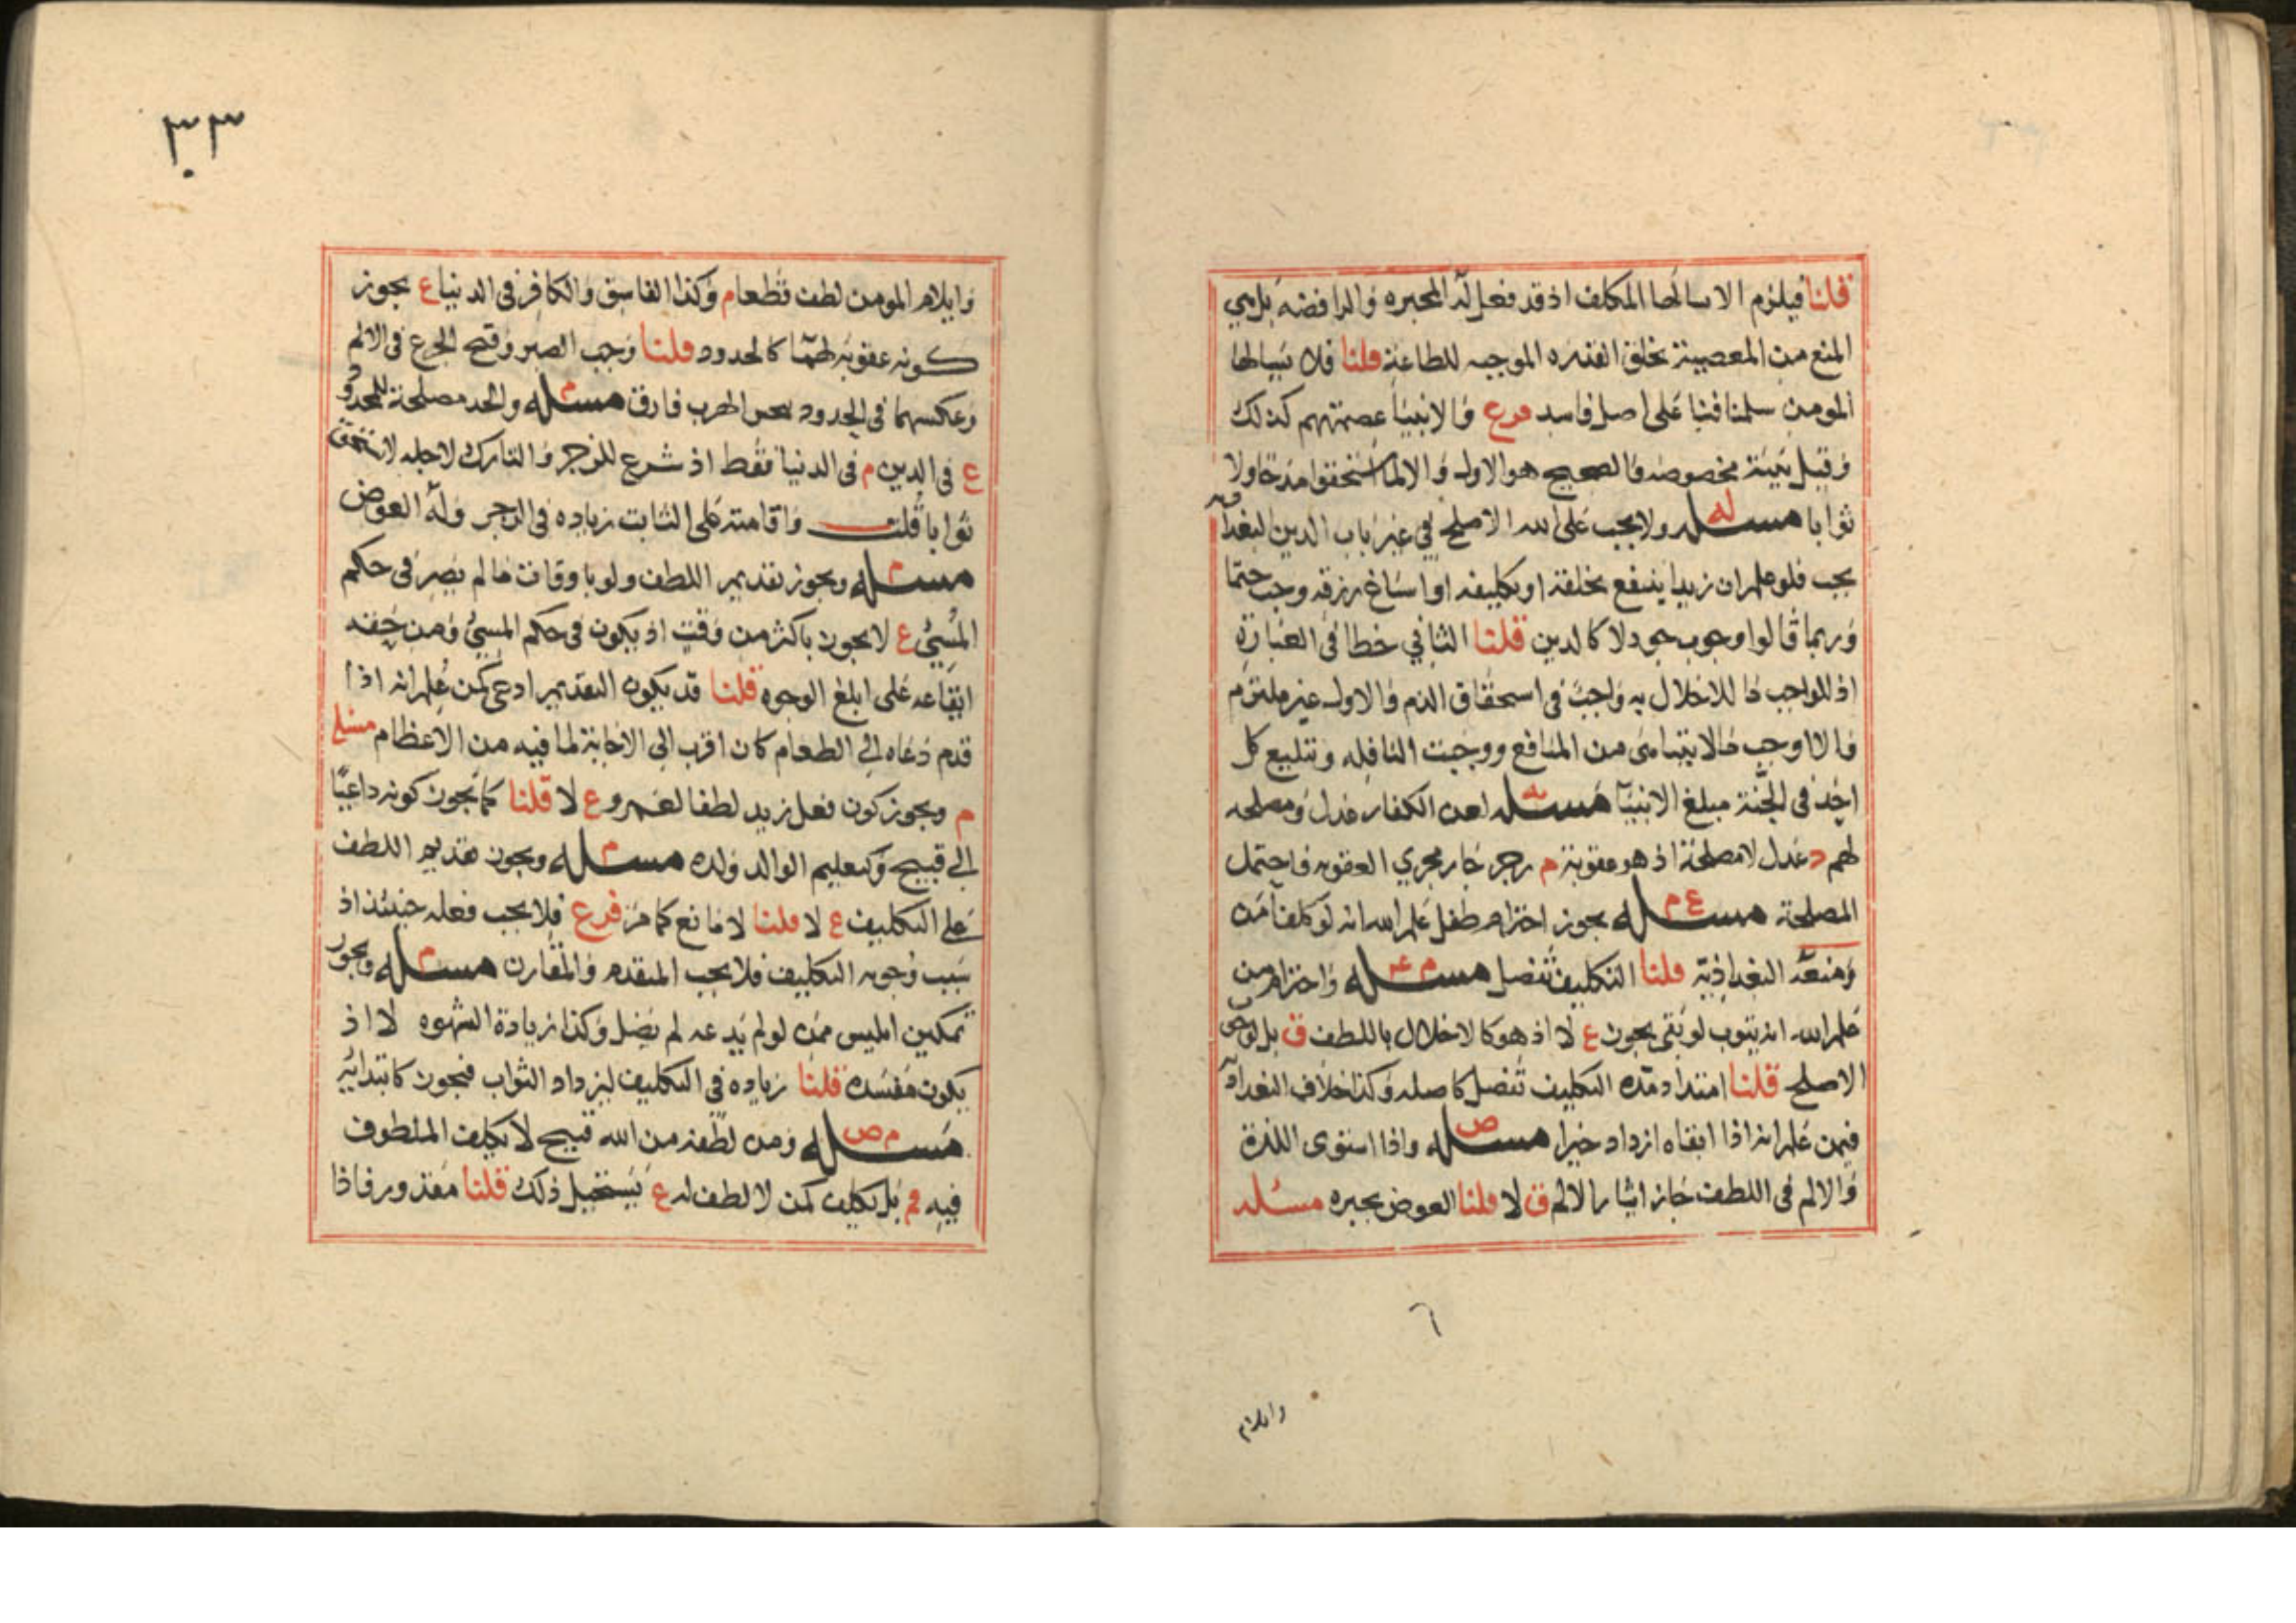 قلنا فيلزم الا يسالها المكلف اذ قد فعل له المجبره والرافضه بل هي
المنع من المعصية بخلق القدره الموجبه للطاعة قلنا فلا يسالها
المومن سلمنا فبنا على اصل فاسد فرع والانبيا عصمتهم كذلك
وقيل بنية مخصوصه والصحيح هو الاول والا لما استحقوا مدحا ولا
ثوابا مسله ولا يجب على الله الاصلح في غير باب الدين البغداديه
يجب فلو علم ان زيدا ينتفع بخلقه او تكليفه او اساغ رزقه وجب حتما
وربما قالوا وجوب جود لا كالدين قلنا الثاني خطا في العبارة
اذ الواجب ما للاخلال به واجب في استحقاق الذم والاول غير ملتزم
والا لاوجب ما لا يتناهى من المنافع ووجبت النافله وتبليغ كل
احد في الجنة مبلغ الانبيا مسله لعن الكفار عدل ومصلحه
لهم د عدل لا مصلحة اذ هو عقوبة م زجر جار مجري العقوبه فاحتمل
المصلحة مسله ع م يجوز اخترام طفل علم الله انه لو كلف آمن
ومنعه البغداذية قلنا التكليف تفضل مسله م واخترام من
علم الله انه يتوب لو بقي يجوز ع لا اذ هو كالاخلال باللطف ق بل لوجوب
الاصلح قلنا امتداد مده التكليف تفضل كاصله وكذا خلاف البغداديه
فيمن علم انه اذا ابقاه ازداد خيرا مسله ص واذا استوى اللذة
والالم في اللطف جاز ايثار الالم ق لا قلنا العوض يجبره مسله
٦
وايلام
٣٣
وايلام المومن لطف قطعا م وكذا الفاسق والكافر في الدنيا ع يجوز
كونه عقوبة لهما كالحدود قلنا وجب الصبر وقبح الجزع في الالم
وعكسهما في الحدود الهرب فارق مسله م والحد مصلحة للمحدود
ع في الدين م في الدنيا فقط اذ شرع للزجر والتارك لاجله لا يستحق
ثوابا قلت واقامته على التائب زياده في الزجر وله العوض
مسله م ويجوز تقديم اللطف ولو باوقات ما لم يصر في حكم
المنسي ع لا يجوز باكثر من وقت اذ يكون في حكم المنسي ومن حقه
ايقاعه على ابلغ الوجوه قلنا قد يكون التقديم ادعى كمن علم انه اذا
قدم دعاه الى الطعام كان اقرب الى الاجابة لما فيه من الاعظام مسله
م ويجوز كون فعل زيد لطفا لعمرو ع لا قلنا كما يجوز كونه داعيا
الى قبيح وكتعليم الوالد ولده مسله م ويجوز تقديم اللطف
على التكليف ع لا قلنا لا مانع كما مر فرع فلا يجب فعله حينئذ اذ
سبب وجوبه التكليف فلا يجب المتقدم والمقارن مسله م ويجوز
تمكين ابليس ممن لو لم يدعه لم يضل وكذا زيادة الشهوه لا اذ
يكون مفسده قلنا زياده في التكليف ليزداد الثواب فيجوز كابتدائه
مسله م ص ومن لطفه من الله قبيح لا يكلف الملطوف
فيه م بل تكليف كمن لا لطف له ع يستحيل ذلك قلنا مقدور فاذا